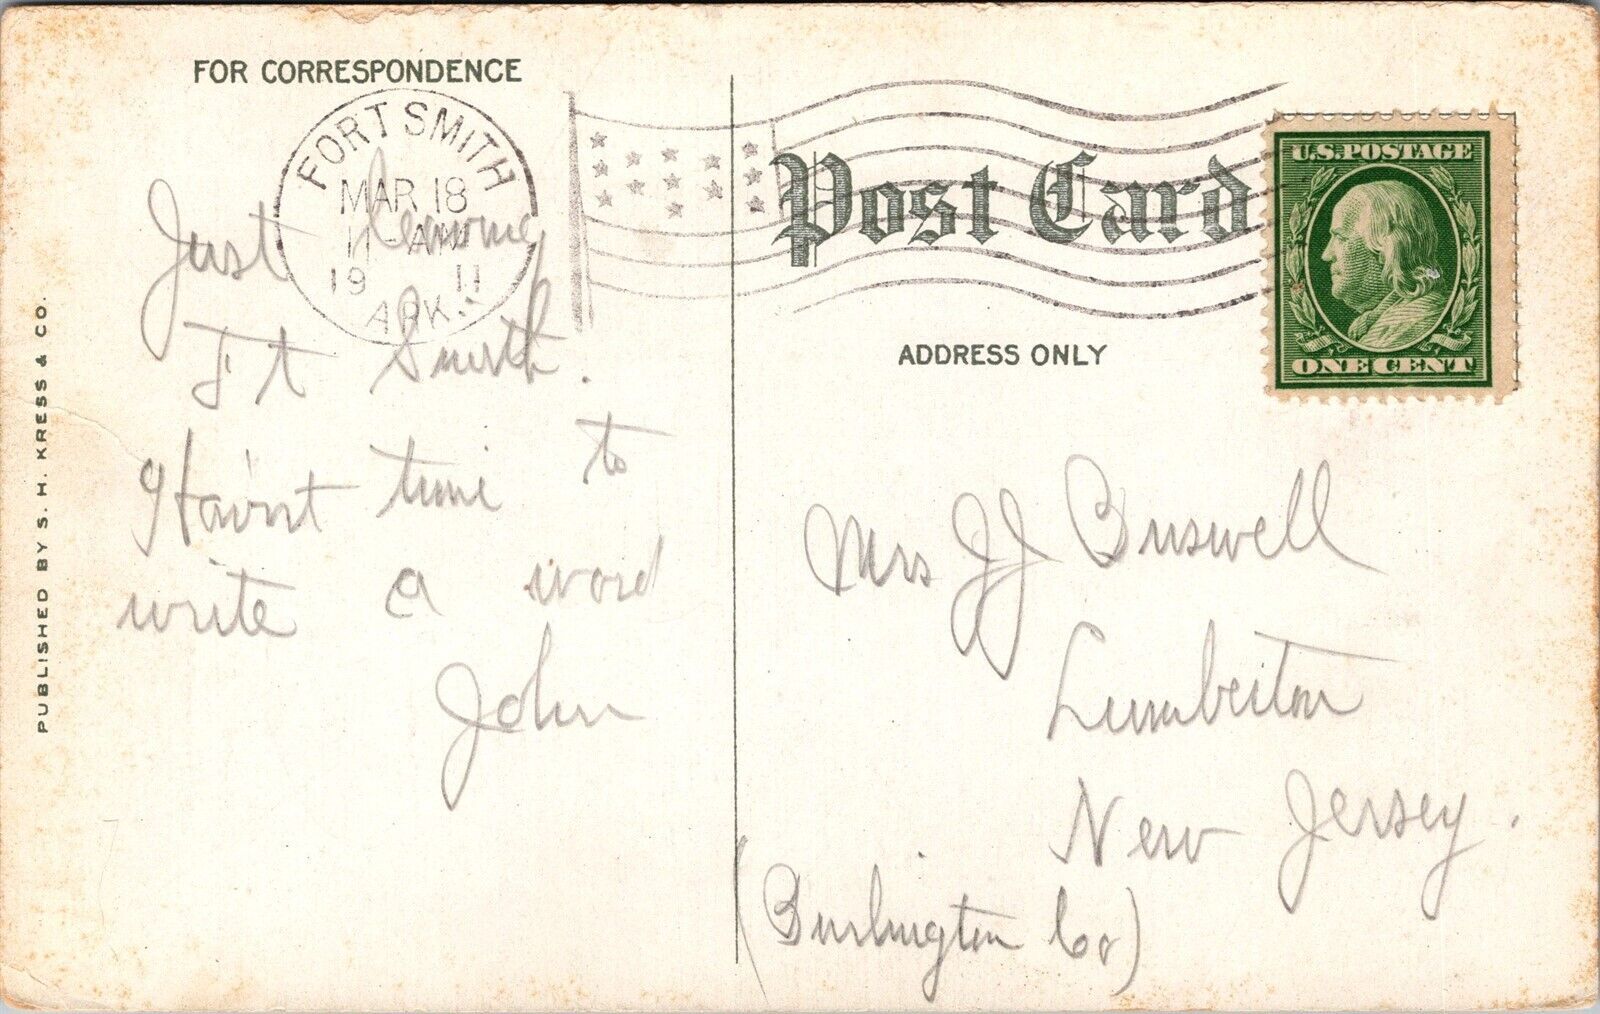 FOR CORRESPONDENCE
FORT SMITH
MAR 18
11-AM
19 11
ARK.
Just leaving
Ft Smith.
Hav'nt time to
write a word
John
PUBLISHED BY S. H. KRESS & CO.
Post Card
ADDRESS ONLY
U.S. POSTAGE
ONE CENT
Mrs JJ Buswell
Lumberton
New Jersey.
(Burlington Co)